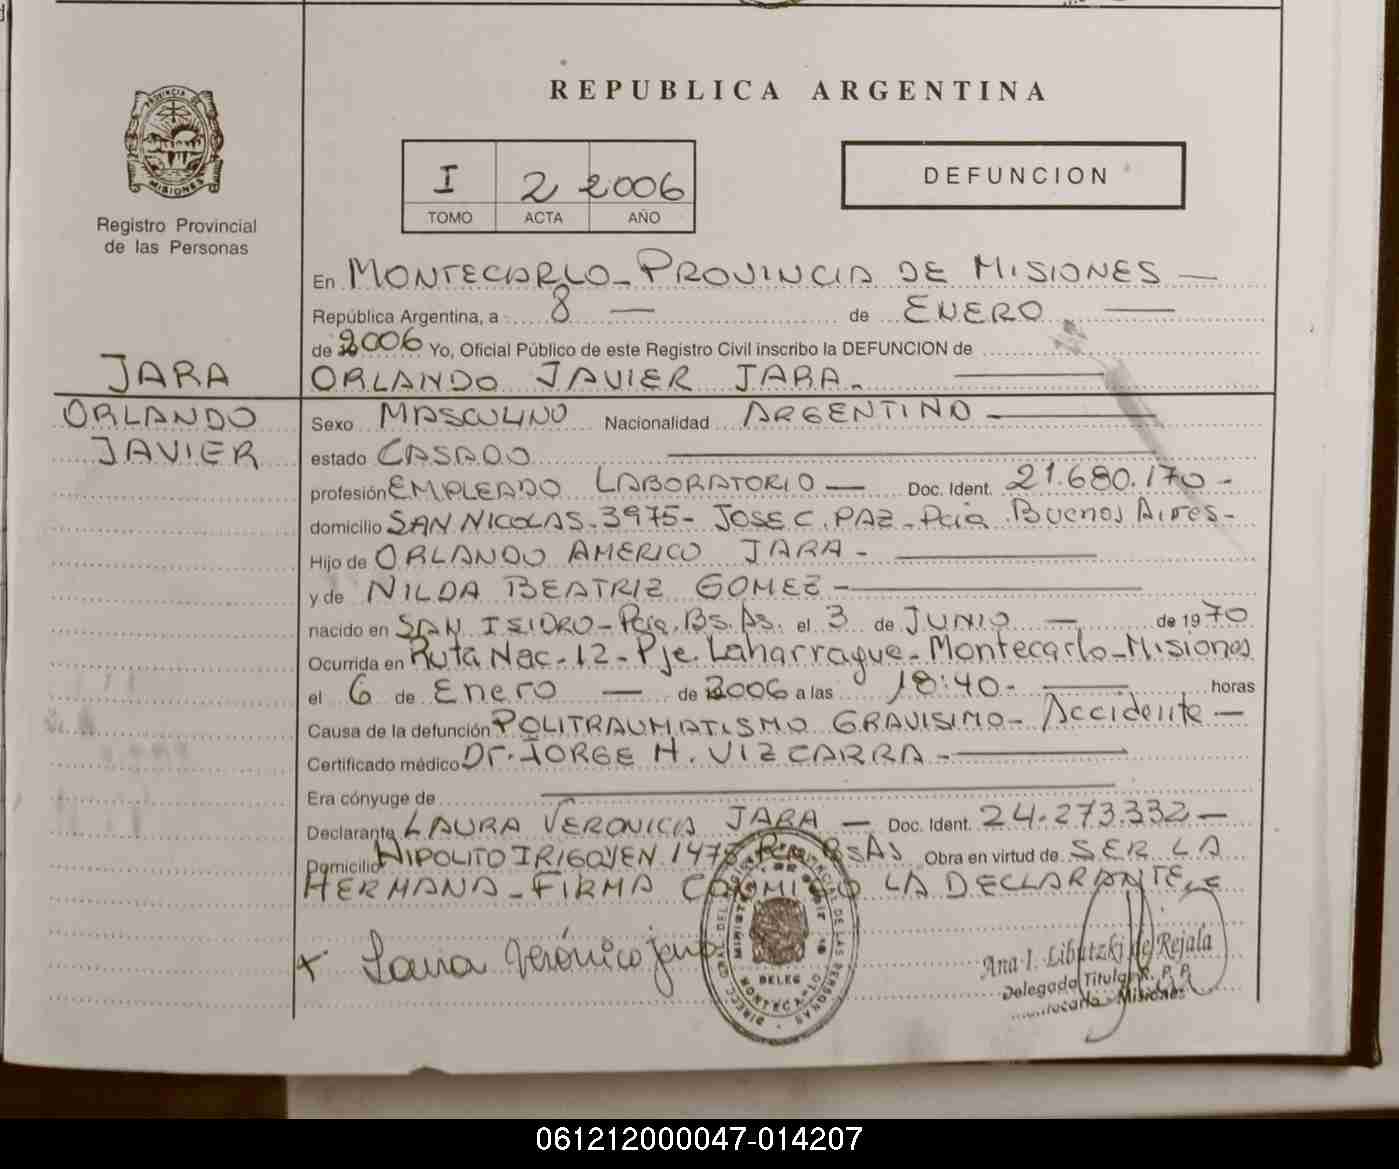 REPUBLICA ARGENTINA
PROVINCIA DE MISIONES
Registro Provincial
de las Personas
I 2 2006
TOMO ACTA AÑO
DEFUNCION
En MONTECARLO - PROVINCIA DE MISIONES —
República Argentina, a 8 — de ENERO —
de 2006 Yo, Oficial Público de este Registro Civil inscribo la DEFUNCION de
JARA
ORLANDO
JAVIER
ORLANDO JAVIER JARA. —
Sexo MASCULINO Nacionalidad ARGENTINO —
estado CASADO —
profesión EMPLEADO LABORATORIO — Doc. Ident. 21.680.170 -
domicilio SAN NICOLAS - 3975 - JOSE C. PAZ - Pcia Buenos Aires -
Hijo de ORLANDO AMERICO JARA - —
y de NILDA BEATRIZ GOMEZ - —
nacido en SAN ISIDRO - Pcia. Bs. As. el 3 de JUNIO — de 1970
Ocurrida en Ruta Nac. 12 - Pje. Laharrague - Montecarlo - Misiones
el 6 de Enero — de 2006 a las 18:40 - — horas
Causa de la defunción POLITRAUMATISMO GRAVISIMO - Accidente —
Certificado médico Dr. JORGE H. VIZCARRA - —
Era cónyuge de —
Declarante LAURA VERONICA JARA — Doc. Ident. 24.273.332 —
Domicilio HIPOLITO IRIGOYEN 1475 BsAs Obra en virtud de SER LA
HERMANA - FIRMA CONMIGO LA DECLARANTE
x Laura Verónica Jara
DELEG
MONTECARLO
Ana I. Libutzki de Rejala
Delegada Titular R. P. P.
Misiones
061212000047-014207